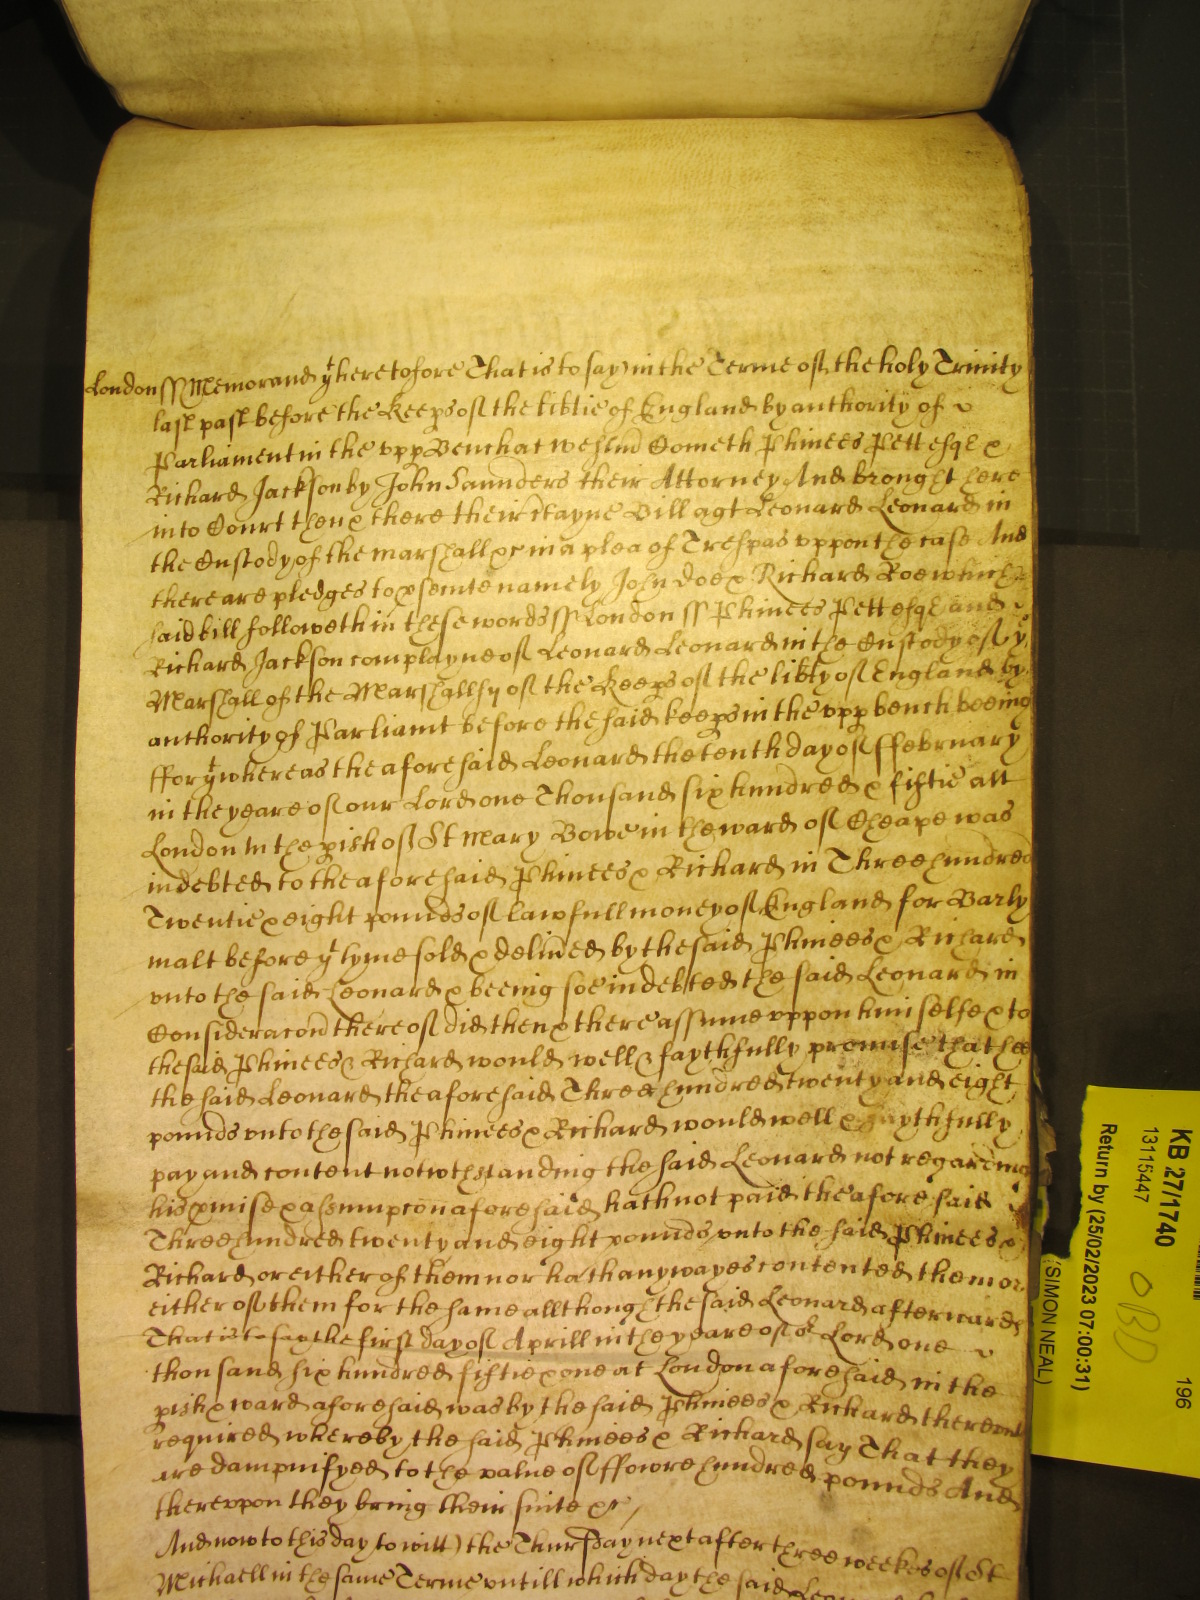 London ss Memorand yt heretofore That is to say in the Terme of the holy Trinity
last past before the Keeps of the libtie of England by authority of
Parliament in the vpp Bench at Westm Cometh Phinees Pett esqr &
Richard Jackson by John Saunders their Attorney And brought here
into Court then & there their Bill agt Leonard Leonard in
the Custody of the marshall &c in a plea of Trespas vppon the case And
there are pledges to psecute namely John Doe & Richard Roe which
said bill followeth in these words ss London ss Phinees Pett esqr and
Richard Jackson complayne of Leonard Leonard in the Custody of ye
Marshall of the Marshallsy of the Keeps of the libty of England by
authority of Parliamt before the said keeps in the vpp bench beeing
ffor yt whereas the aforesaid Leonard the tenth day of ffebruary
in the yeare of our Lord one Thousand six hundred & fiftie att
London In the pish of St Mary Bowe in the ward of Cheape was
indebted to the aforesaid Phinees & Richard in Three hundred
Twentie & eight pounds of lawfull money of England for Barly
malt before yt tyme sold & delived by the said Phinees & Richard
vnto the said Leonard & beeing soe indebted the said Leonard in
Consideracon thereof did then & there assume vppon himselfe & to
the said Phinees & Richard would well & faythfully promise that hee
the said Leonard the aforesaid Three hundred twenty and eight
pounds vnto the said Phinees & Richard would well & faythfully
pay and content notwthstanding the said Leonard not regarding
his pmise & assumpcon aforesaid hath not paid the afore said
Three hundred twenty and eight pounds vnto the said Phinees &
Richard or either of them nor hath any wayes contented them or
either of them for the same allthough the said Leonard afterwards
That is to say the first day of Aprill in the yeare of or Lord one
thousand six hundred fiftie & one at London aforesaid in the
pish & ward aforesaid was by the said Phinees & Richard therevnto
required whereby the said Phinees & Richard say That they
are dampnifyed to the value of ffowre hundred pounds And
therevppon they bring their suite &c
And now to this day to witt) the Thursday next after three weekes of St
Michaell in the same Terme vntill which day the said
KB 27/1740
13115447
196
Return by (25/02/2023 07:00:31)
(SIMON NEAL)
OBD